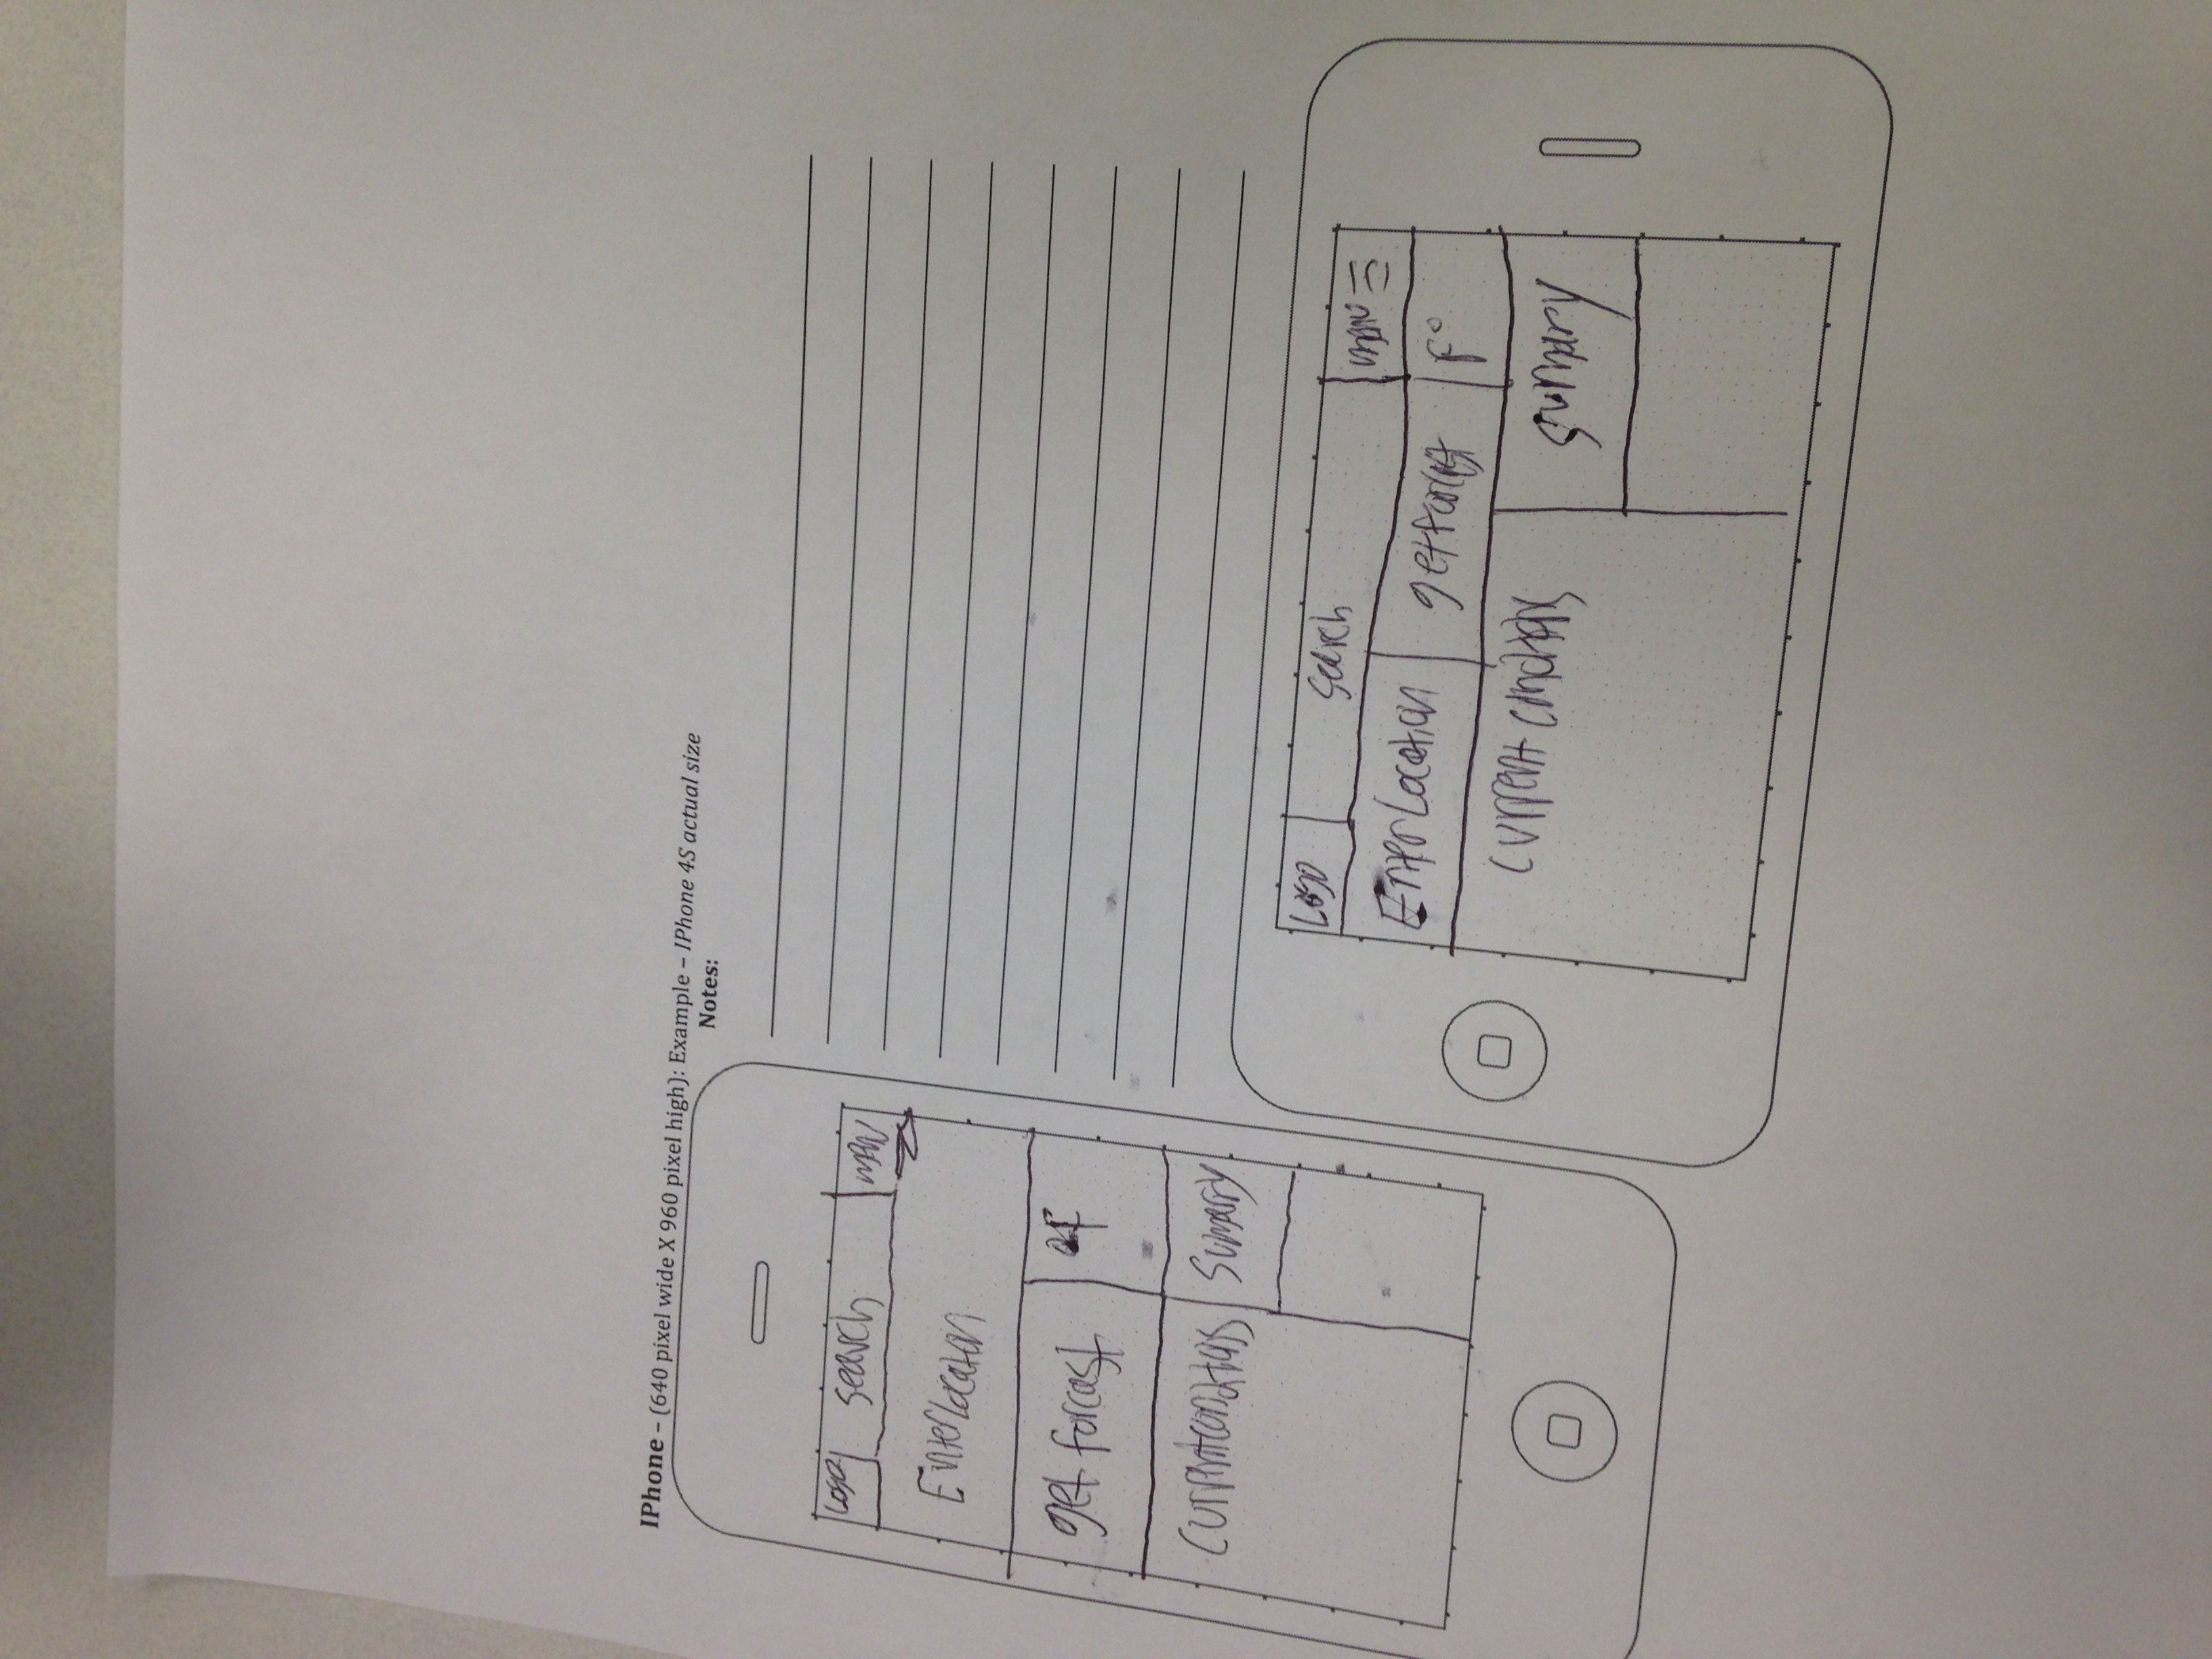 IPhone – (640 pixel wide X 960 pixel high): Example – IPhone 4S actual size
Notes:
Logo search menu
Enter Location
get forcast °F
Current conditions Sumarry
Logo search menu
Enter Location get forcast F°
Current conditions Summary